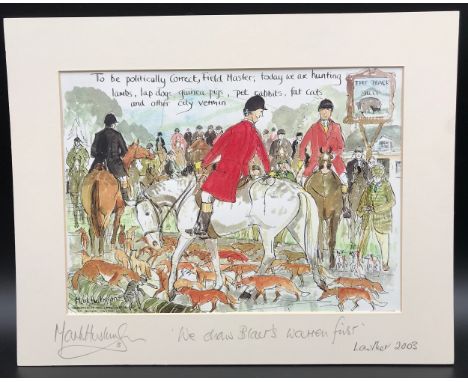 To be politically correct, Field Master, today we are hunting
lambs, lap dogs, guinea pigs, pet rabbits, fat cats
and other city vermin
THE BLACK
BULL
'We draw Blair's warren first'
Lowther 2003